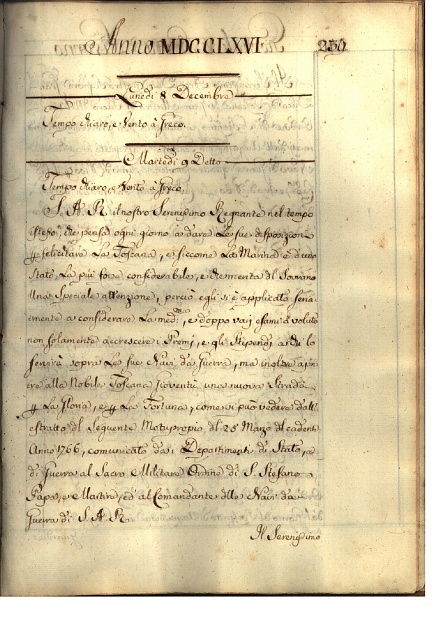 Anno MDCCLXVI 230
Lunedì 8 Decembre
Tempo chiaro, e Vento à Greco.
Martedì 9 Detto
Tempo chiaro, e Vento à Greco.
S. A. R. il nostro Serenissimo Regnante nel tempo
stesso, che pensa ogni giorno a dare le sue disposizioni
felicitare La Toscana, e siccome La Marina è di uno
Stato, La più forte considerabile, e del Sovrano
una Speciale attenzione, perciò egli si è applicato seria
mente a considerare La e doppo varj esami à voluto
non solamente accrescere i Premj, e gli Stipendj a chi lo
servirà sopra Le sue Navi da Guerra, ma inoltre apri
re alla Nobile Toscana Gioventù una nuova Strada
La Gloria, e La Fortuna, come si può vedere dall'
estratto del Seguente Motuproprio del 25 Marzo cadente
Anno 1766, comunicato da i Dipartimenti di Stato, e
di Guerra al Sacro Militare Ordine di S. Stefano
Papa, e Martire, ed al Comandante delle Navi da
Guerra di S. A. R.
Il Serenissimo